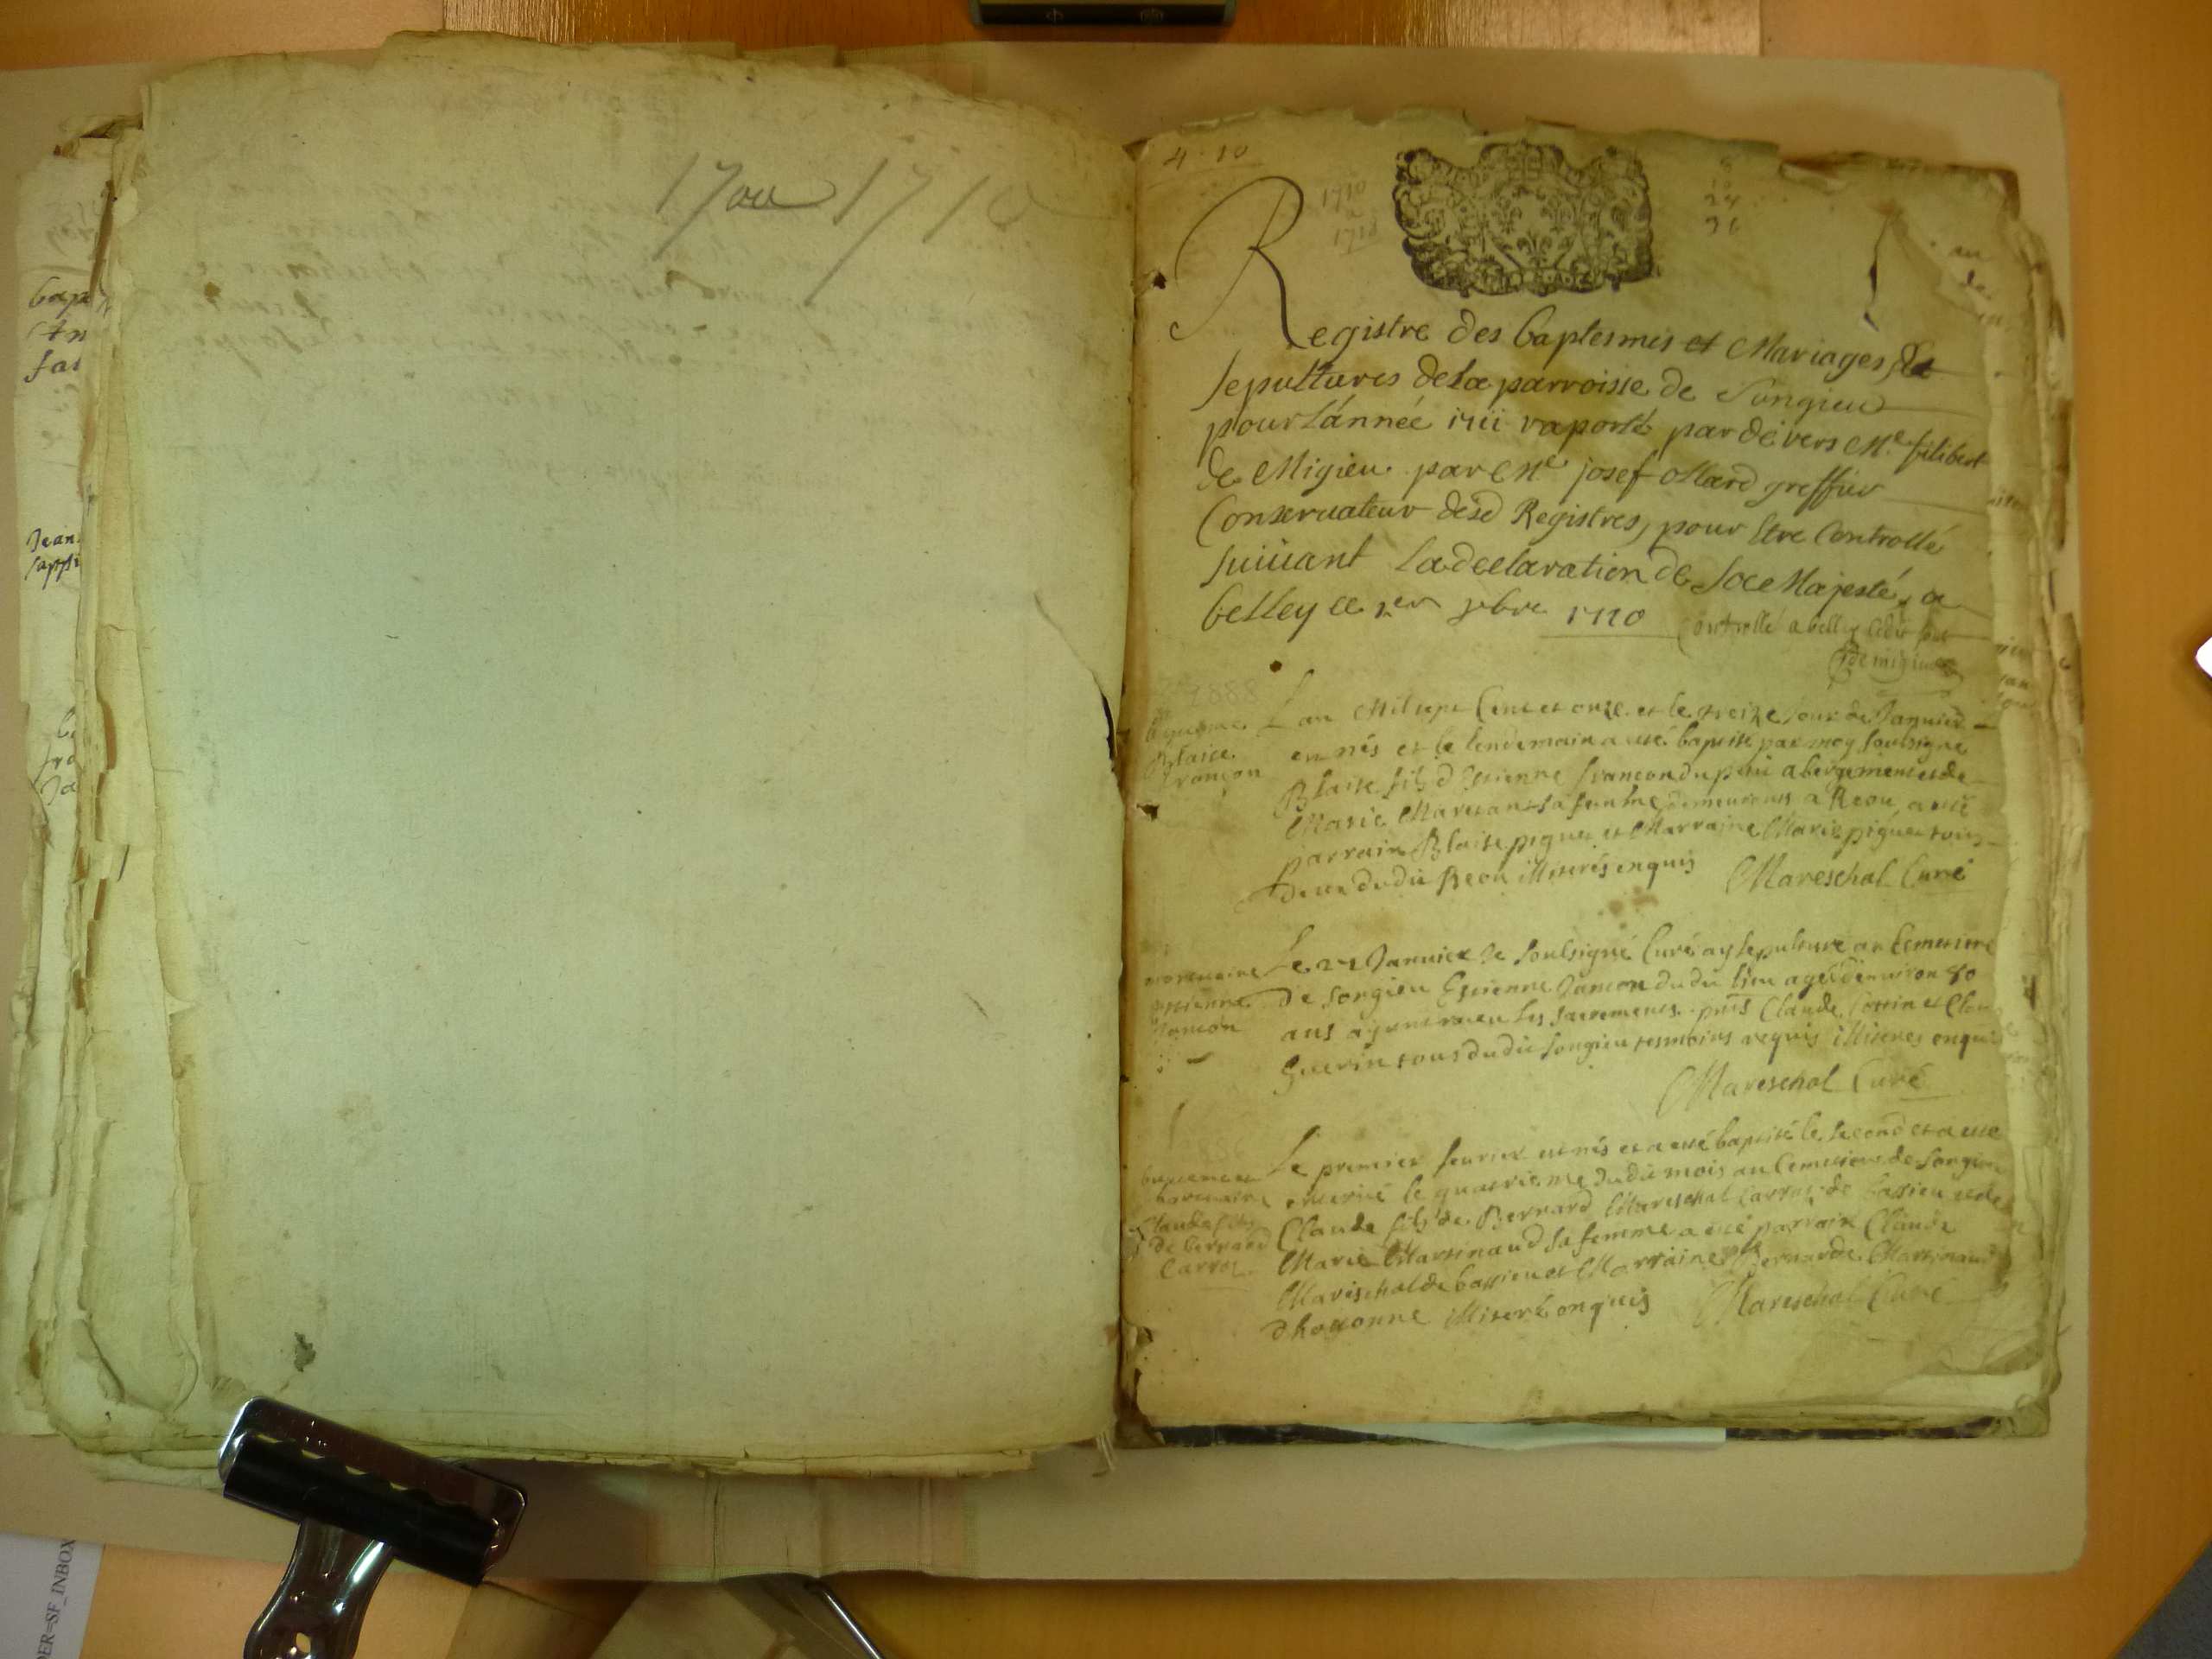 1700 1710
4 - 10
1710
a
1718
8
10
24
36
Registre des baptesmes et Mariages &
sepultures dela parroisse de Songieu
pour l'année 1711 raporté par devers Me filibert
de Migieu par Me josef Ollard greffier
Conservateur desd Registres, pour Etre Controllé
suivant la declaration de sa Majesté, a
belley ce 1er xbre 1710 Controllé a belley ledit jour
De migieu
1888
baptesme
Blaise
françon
L'an Mil sept Cent et onze et le treize jour de Janvier
est nés et le lendemain a esté baptisé par moy soubsigné
Blaise fils d'Estienne françon du petit abergement et de
Marie sa femme demeurants a Reou, a esté
parrain Blaise piguet et Marraine Marie piguet tous
deux dudit Reou illiterés enquis Mareschal Curé
mortuaire
estienne
Jancon
Le 24 Janvier Je soubsigné Curé ay sepulturé au Cemetiere
de Songieu Estienne Jancon dudit lieu agé d'environ 80
ans ayant receu les sacrements. pnts Claude Cottin et
Guerin tous dudit Songieu tesmoins requis illiteres enquis
Mareschal Curé
bapteme et
mortuaire
Claude fils
de bernard
Carrot
Le premier fevrier est nés et a esté baptisé le second et a esté
enterré le quatrieme dudit mois au Cemetiere de Songieu
Claude fils de Bernard Mareschal Carrot de bassieu et de
Marie Martinaud sa femme a esté parrain Claude
Mareschal de bassieu et Marraine Bernarde Martinaud
d'hoyonne illiteré enquis Mareschal Curé
bap
An
Jean
au
de
DER=SF_INBOX